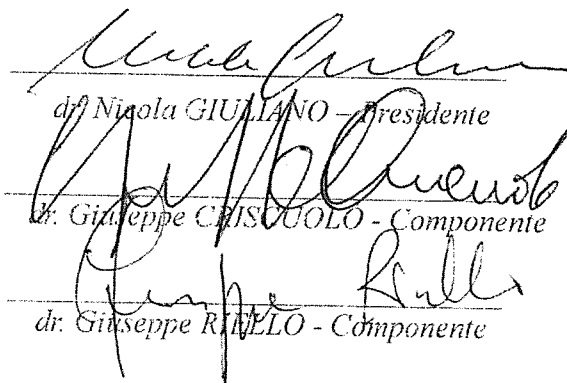 dr. Nicola GIULIANO – Presidente
dr. Giuseppe CRISCUOLO - Componente
Giuseppe Riello
dr. Giuseppe RIELLO - Componente